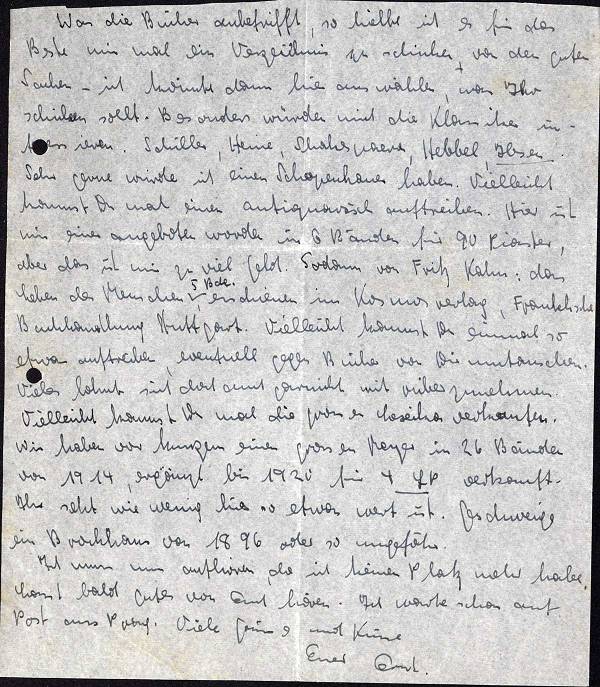 Was die Bücher anbetrifft, so hielte ich es für das
Beste mir mal ein Verzeichnis zu schicken, von den guten
Sachen - ich könnte dann hier auswählen, was Ihr
schicken sollt. Besonders würden mich die Klassiker in-
teressieren. Schiller, Heine, Shakespeare, Hebbel, Ibsen.
Sehr gerne würde ich einen Schopenhauer haben. Vielleicht
kannst Du mal einen antiquarisch auftreiben. Hier ist
mir einer angeboten worden in 6 Bänden für 90 Piaster,
aber das ist mir zu viel Geld. Sodann von Fritz Kahn: das
Leben des Menschen, 5 Bde. erschienen im Kosmosverlag, Franckhsche
Buchhandlung Stuttgart. Vielleicht kannst Du einmal so
etwas auftreiben, eventuell gegen Bücher von Dir umtauschen.
Vieles lohnt sich dort garnicht mit rüberzunehmen.
Vielleicht kannst Du mal die grossen verkaufen.
Wir haben vor kurzem einen grossen Meyer in 26 Bänden
von 1914, ergänzt bis 1920 für 4 LP verkauft.
Ihr seht wie wenig hier so etwas wert ist. Geschweige
ein Brockhaus von 1896 oder so ungefähr.
Ich muss nun aufhören da ich keinen Platz mehr habe.
Lasst bald gutes von Euch hören. Ich warte schon auf
Post aus Prag. Viele Grüsse und Küsse
Euer